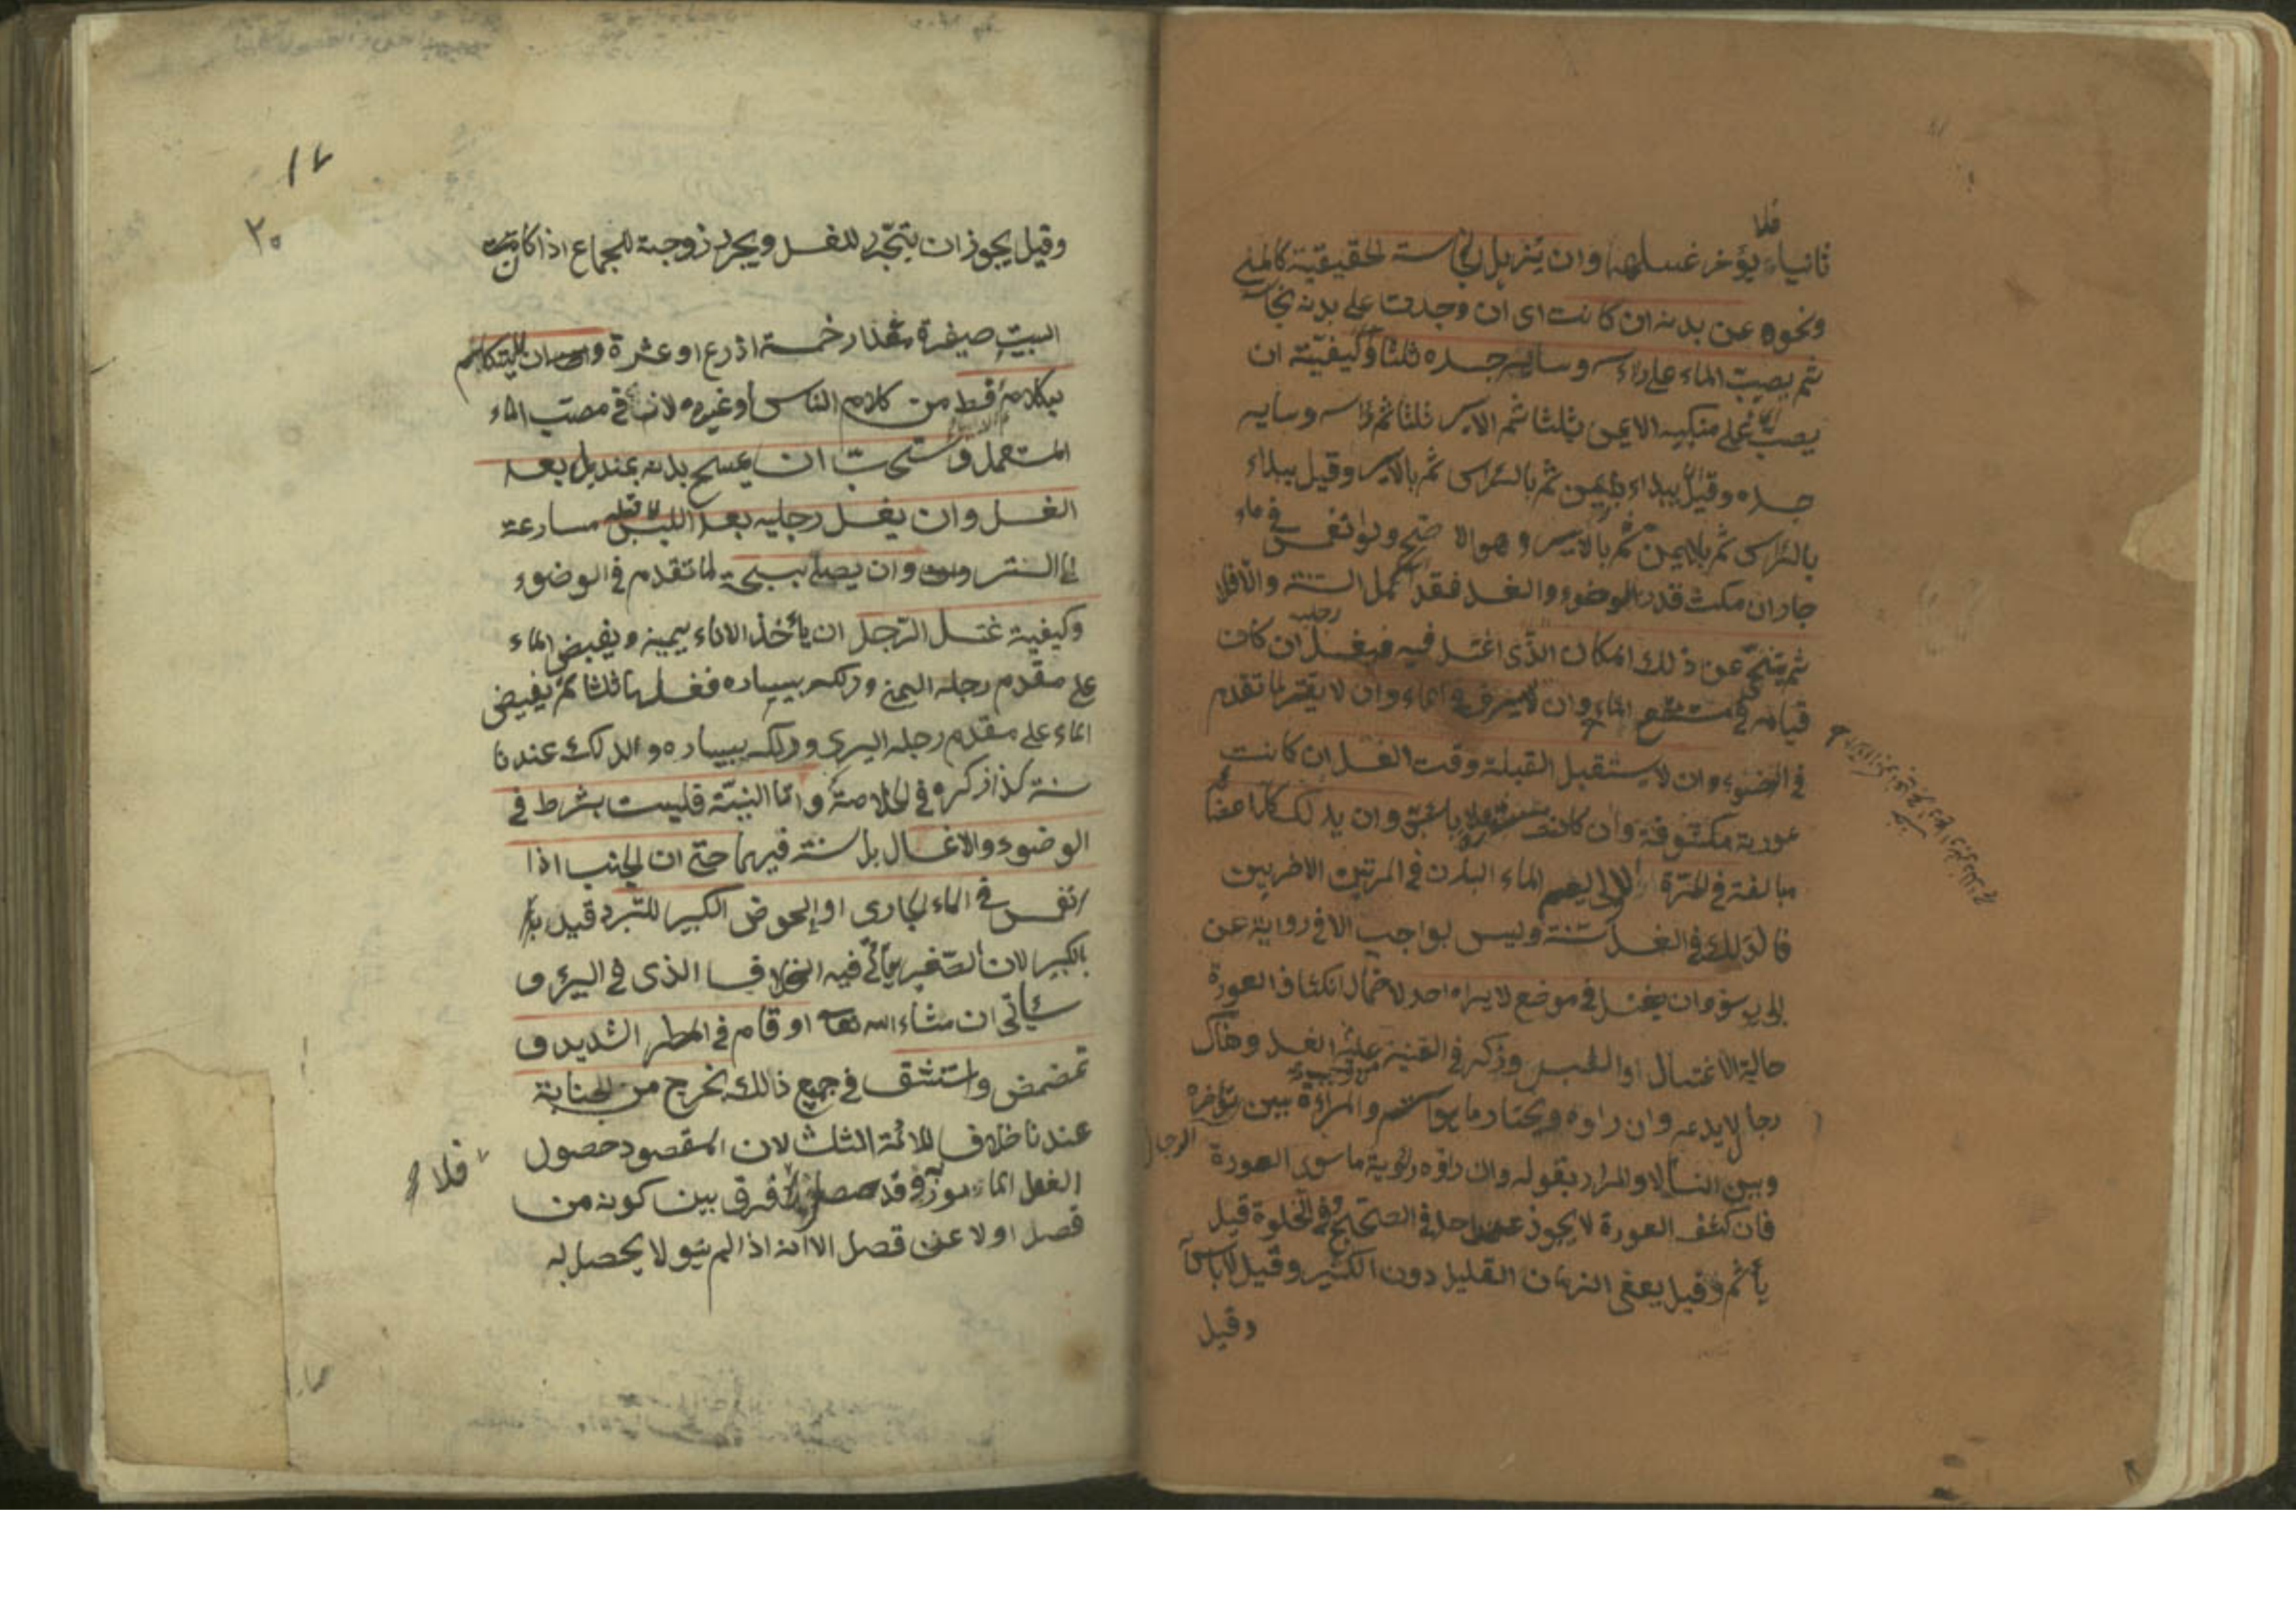 فلا
ثانيا يؤخر غسلهما وان يزيل النجاسة الحقيقية كالمني
ونحوه عن بدنه ان كانت اى ان وجدت على بدنه نجاسة
ثم يصب الماء على راسه وساير جسده ثلثا وكيفيته ان
يصب على منكبه الايمن ثلثا ثم الايسر ثلثا ثم راسه وساير
جسده وقيل يبداء بالايمن ثم بالراس ثم بالايسر وقيل يبداء
بالراس ثم بالايمن ثم بالايسر وهو الاصح ولو انغمس في ماء
جار ان مكث قدر الوضوء والغسل فقد اكمل السنة والا فلا
ثم يتنحى عن ذلك المكان الذى اغتسل فيه فيغسل رجليه ان كان
قيامه في مستنقع الماء وان لا يسرف في الماء وان لا يقتر لما تقدم
في الوضوء وان لا يستقبل القبلة وقت الغسل ان كانت
عورته مكشوفة وان كانت مستورة فلا بأس وان يدلك كل اعضائه
مبالغة في المرة الاولى ليعم الماء البدن في المرتين الاخريين
فالدلك في الغسل سنة وليس بواجب الا في رواية عن
ابى يوسف وان يغتسل في موضع لا يراه احد لاحتمال انكشاف العورة
حالة الاغتسال او اللبس وذكر في القنية عليه الغسل وهناك
رجال لا يدعه وان راوه ويختار ما هو استر والمراءة بين الرجال تؤخره
وبين النساء لا والمراد بقوله وان راوه رؤية ما سوى العورة
فان كشف العورة لا يجوز عند احد في الصحيح وفي الخلوة قيل
يأثم وقيل يعفى الزمان القليل دون الكثير وقيل لا بأس
وقيل
١٧
٢٠
وقيل يجوز ان يتجرد للغسل ويجرد زوجته للجماع اذا كانت
البيت صغيرة مقدار خمسة اذرع او عشرة وان لا يتكلم
بكلام قط من كلام الناس او غيره لانه في مصب الماء
المستعمل ويستحب ان يمسح بدنه بمنديل بعد
الغسل وان يغسل رجليه بعد اللبس لا قبله مسارعة
الى الستر وان يصلى سبحة لما تقدم في الوضوء
وكيفية غسل الرجل ان يأخذ الاناء بيمينه ويفيض الماء
على مقدم رجله اليمنى ودلكه بيساره فغسلها ثلثا ثم يفيض
الماء على مقدم رجله اليسرى ودلكه بيساره والدلك عندنا
سنة كذا ذكره في الخلاصة واما النية فليست بشرط في
الوضوء والاغسال بل سنة فيهما حتى ان الجنب اذا
انغمس في الماء الجارى او الحوض الكبير للتبرد قيد
بالكبير لان الصغير يأتى فيه الخلاف الذى في البئر و
سيأتى ان شاء الله تعالى او قام في المطر الشديد و
تمضمض واستنشق في جميع ذالك يخرج من الجنابة
عندنا خلافا للائمة الثلث لان المقصود حصول
الغسل وقد حصل فلا فرق بين كونه من
قصد او لا عن قصد الا انه اذا لم ينو لا يحصل له
فلا